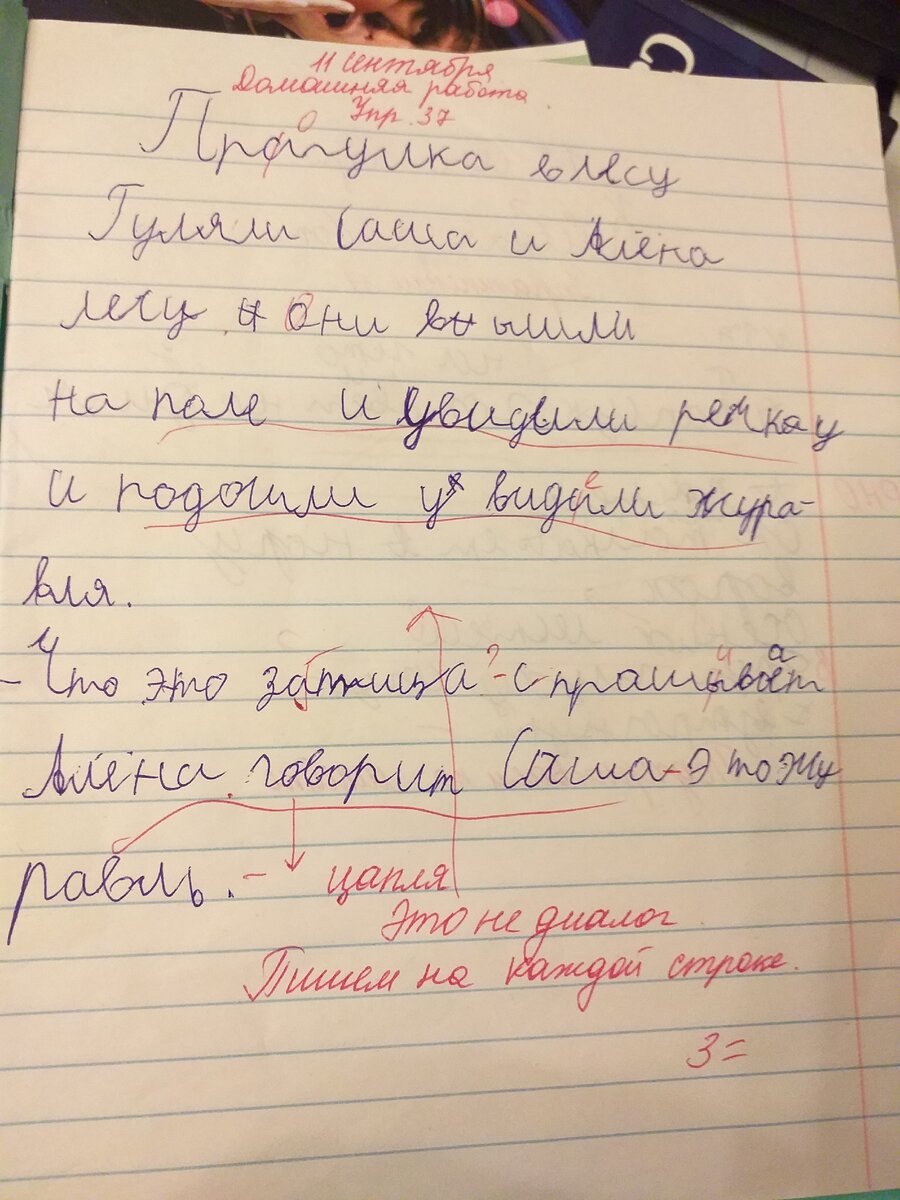 11 сентября
Домашняя работа.
Упр. 37
Прогулка в лесу
Гуляли Саша и Алёна
лесу. Они вышли
на поле и увидили речку
и подошли увидели жура-
вля.
- Что это за птица? - спрашивает
Алёна. говорит Саша - Это жу
равль. -
цапля
Это не диалог.
Пишем на каждой строке.
3=